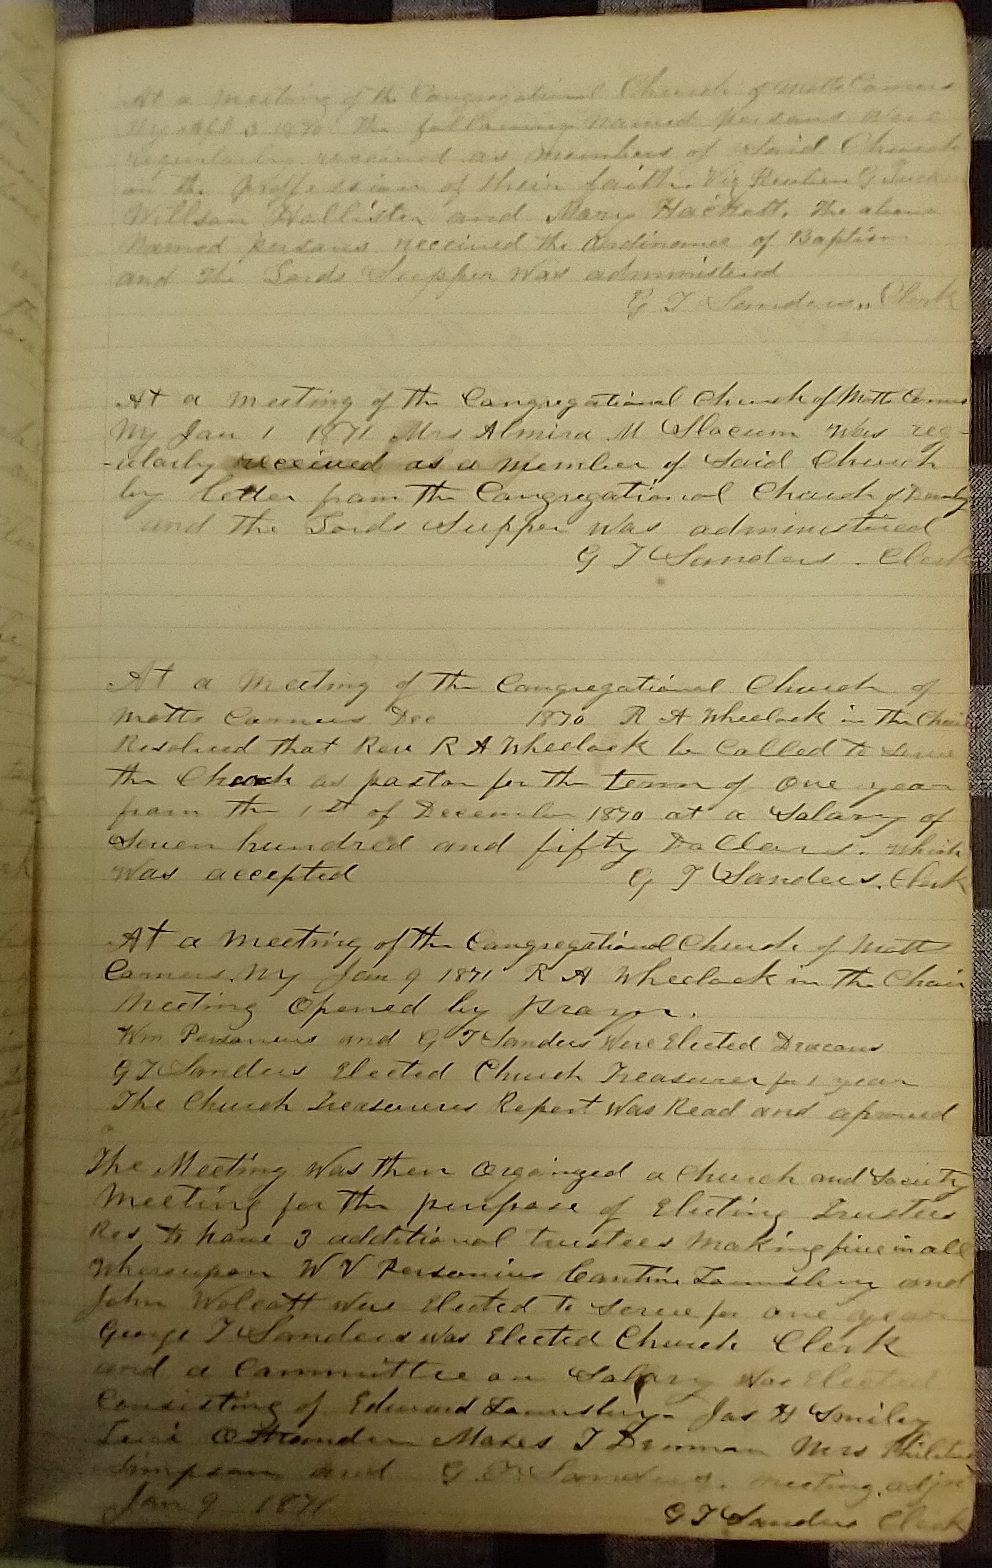 At a Meeting of the Congregational Church of Motts Corners
NY 3 1870 the following named persons were
Regularly received as members of Said Church
on the proffession of their faith. Viz Reuben G
Willson Hollister and Mary Hackett. The above
Named persons received the Ordinance of Baptism
and the Lords Supper Was administered
G T Sanders, Clerk
At a Meeting of the Congregational Church of Motts Corners
NY Jan 1 1871 Mrs Almira M Slocum was reg-
-ularly received as a Member of Said Church
by letter from the Congregational Church of
and the Lords Supper was administered
G T Sanders. Clerk
At a Meeting of the Congregational Church of
Motts Corners Dec 1870 R A Wheelock in the Chair
Resolved that Rev R A Wheelock be Called to serve
the Church as pastor for the term of one year
from the 1st of December 1870 at a Salary of
Seven hundred and fifty Dollars. Which
was accepted G T Sanders. Clerk
At a Meeting of the Congregational Church of Motts
Corners. NY Jan 9 1871 R A Wheelock in the Chair
Meeting Opened by prayer.
Wm Personius and G T Sanders were Elected Deacons
G T Sanders Elected Church Treasurer for 1 year
The Church Treasurers Report was Read and aproved
The Meeting Was then Organized a Church and Society
Meeting for the purpose of Electing Trustees
Res to have 3 additional trustees Making five in all
Whereupon W V Personius Cantine Lounsbery and
John Wolcott were Elected to serve for one year
George T Sanders was Elected Church Clerk
and a Committee on Salary was Elected
Consisting of Edward Lounsbery Jas H Smiley
Levi Ostrander Moses T Denman Mrs
Simpson and G T Sanders. Meeting adjn
Jan 9 1871 G T Sanders Clerk